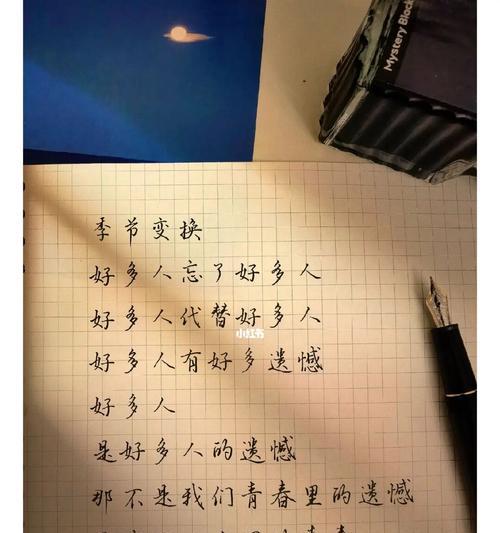 Mystery Block
季节变换
好多人忘了好多人
好多人代替好多人
小红书
好多人有好多遗憾
好多人
是好多人的遗憾
那不是我们青春里的遗憾